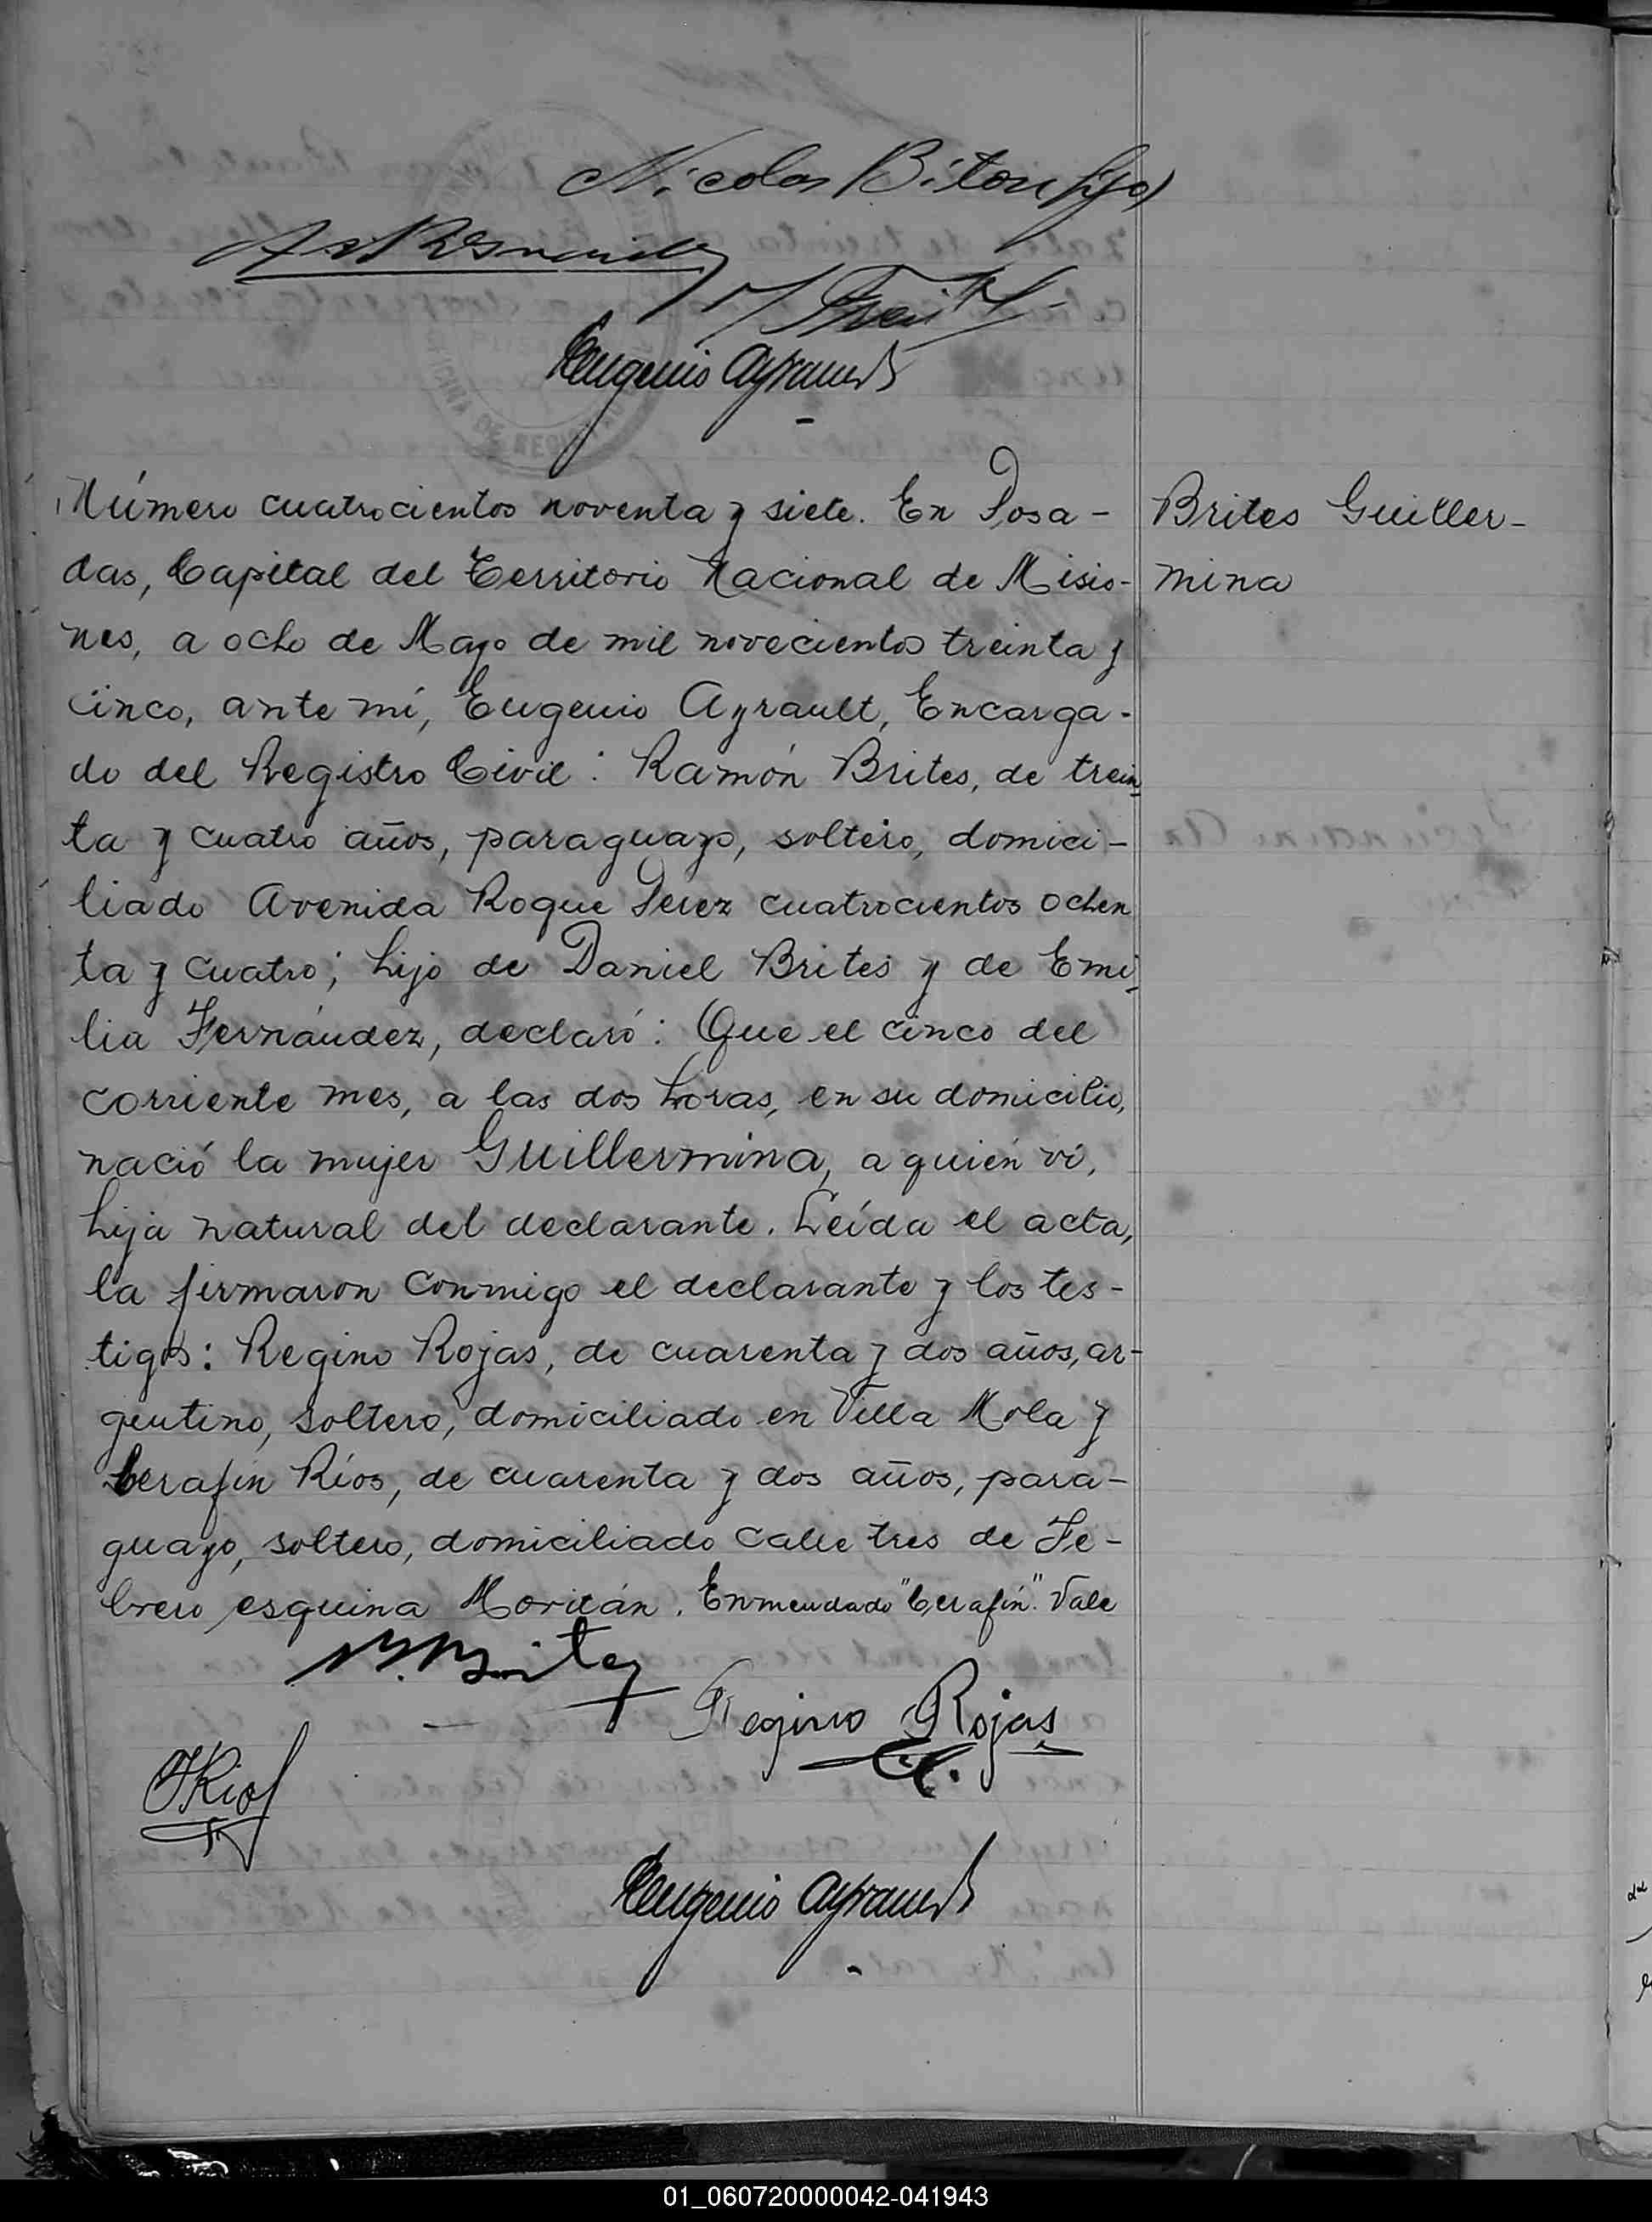 Nicolas Bitori (hijo)
Eugenio Ayrault
Número cuatrocientos noventa y siete. En Posa-
das, Capital del Territorio Nacional de Misio-
nes, a ocho de Mayo de mil novecientos treinta y
cinco, ante mí, Eugenio Ayrault, Encarga-
do del Registro Civil: Ramón Brites, de trein
ta y cuatro años, paraguayo, soltero, domici-
liado Avenida Roque Perez cuatrocientos ochen
ta y cuatro; hijo de Daniel Brites y de Emi
lia Fernández, declaró: Que el cinco del
corriente mes, a las dos horas, en su domicilio,
nació la mujer Guillermina, a quién ví,
hija natural del declarante. Leída el acta,
la firmaron conmigo el declarante y los tes-
tigos: Regino Rojas, de cuarenta y dos años, ar-
gentino, soltero, domiciliado en Villa Mola y
Cerafín Ríos, de cuarenta y dos años, para-
guayo, soltero, domiciliado calle tres de Fe-
brero esquina Moritán. Enmendado "Cerafín". Vale
Brites Guiller-
mina
R. Brites
Regino Rojas
Eugenio Ayrault
01_060720000042-041943